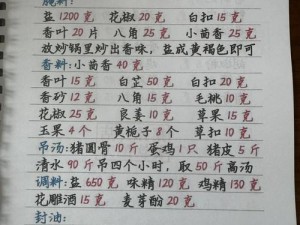 腌料:
盐1200克 花椒20克 白扣15克
香叶20片 八角25克 小茴香25克
放炒锅里炒出香味,盐成黄褐色即可
香料:小茴香40克
香叶15克 白芷50克 白扣20克
香砂12克 八角15克 毛桃10克
花椒25克 良姜10克 草果15克
玉果4个 黄栀子8个 草扣10克
吊汤:猪圆骨10斤 蛋鸡1只 猪皮5斤
清水90斤吊四个小时,取50斤高汤
调料:盐650克 味精120克 鸡精130克
花雕酒15克 麦芽酚20克
封油: